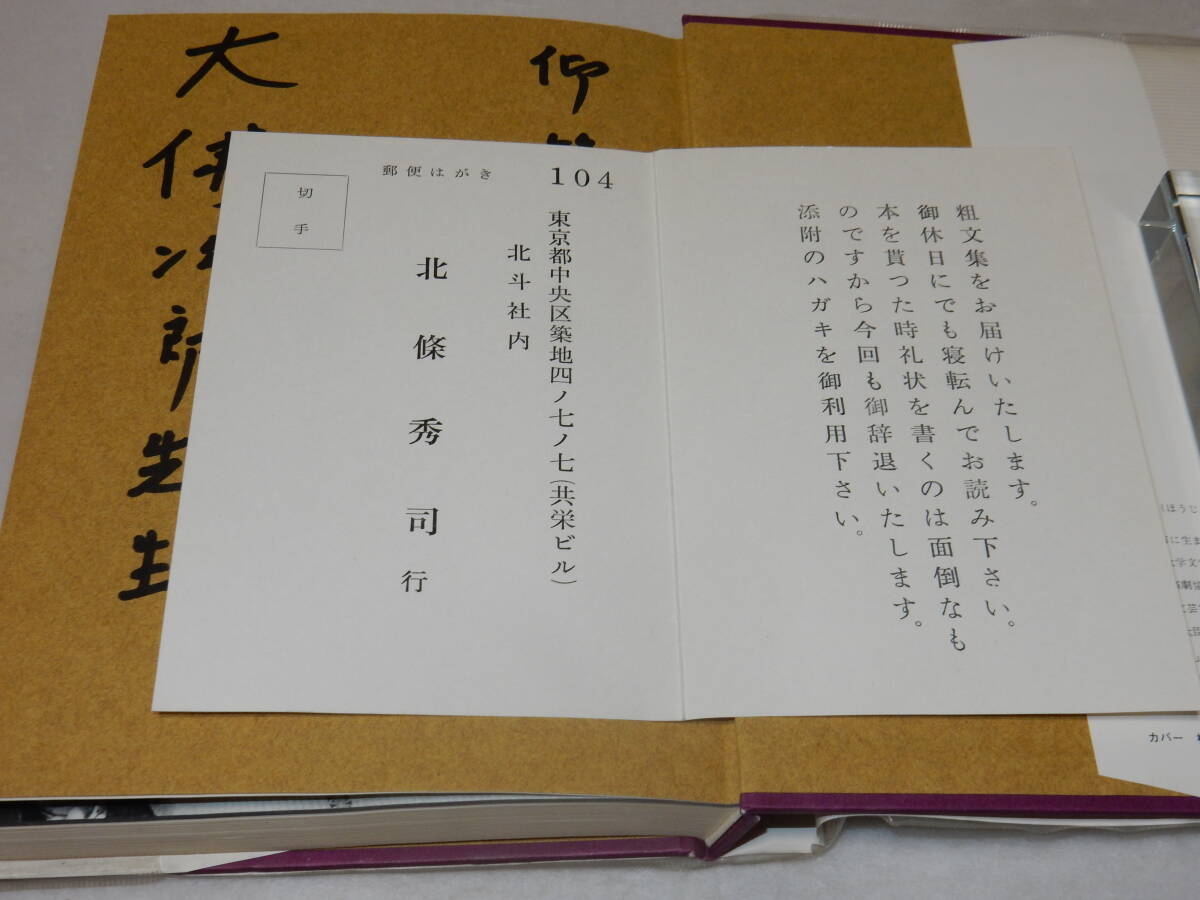 粗文集をお届けいたします。
御休日にでも寝転んでお読み下さい。
本を貰った時礼状を書くのは面倒なも
のですから今回も御辞退いたします。
添附のハガキを御利用下さい。
郵便はがき
104
切手
東京都中央区築地四ノ七ノ七(共栄ビル)
北斗社内
北條秀司行
仰
大佛次郎先生
カバー